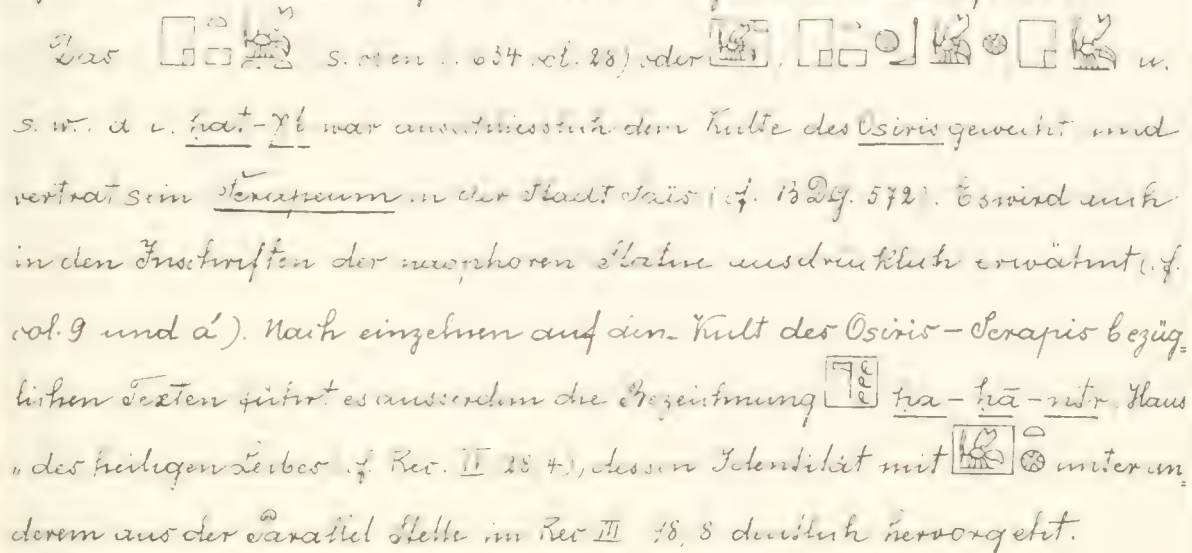 Das s. oben 634 col. 28) oder u.
s. w. d. i. ḥat-χi war ausschliesslich dem Kulte des Osiris geweiht und
vertrat sein Serapeum in der Stadt Saïs (cf. B DG. 572). Es wird auch
in den Inschriften der naophoren Statue ausdrücklich erwähnt (cf.
col. 9 und a'). Nach einzelnen auf den Kult des Osiris-Serapis bezüg=
lichen Texten führt es ausserdem die Bezeichnung ḥa-ḥā-ntr Haus
„des heiligen Leibes cf. Rec. IV 28 4), dessen Identität mit unter an=
derem aus der Parallel Stelle im Rec III 18, 8 deutlich hervorgeht.